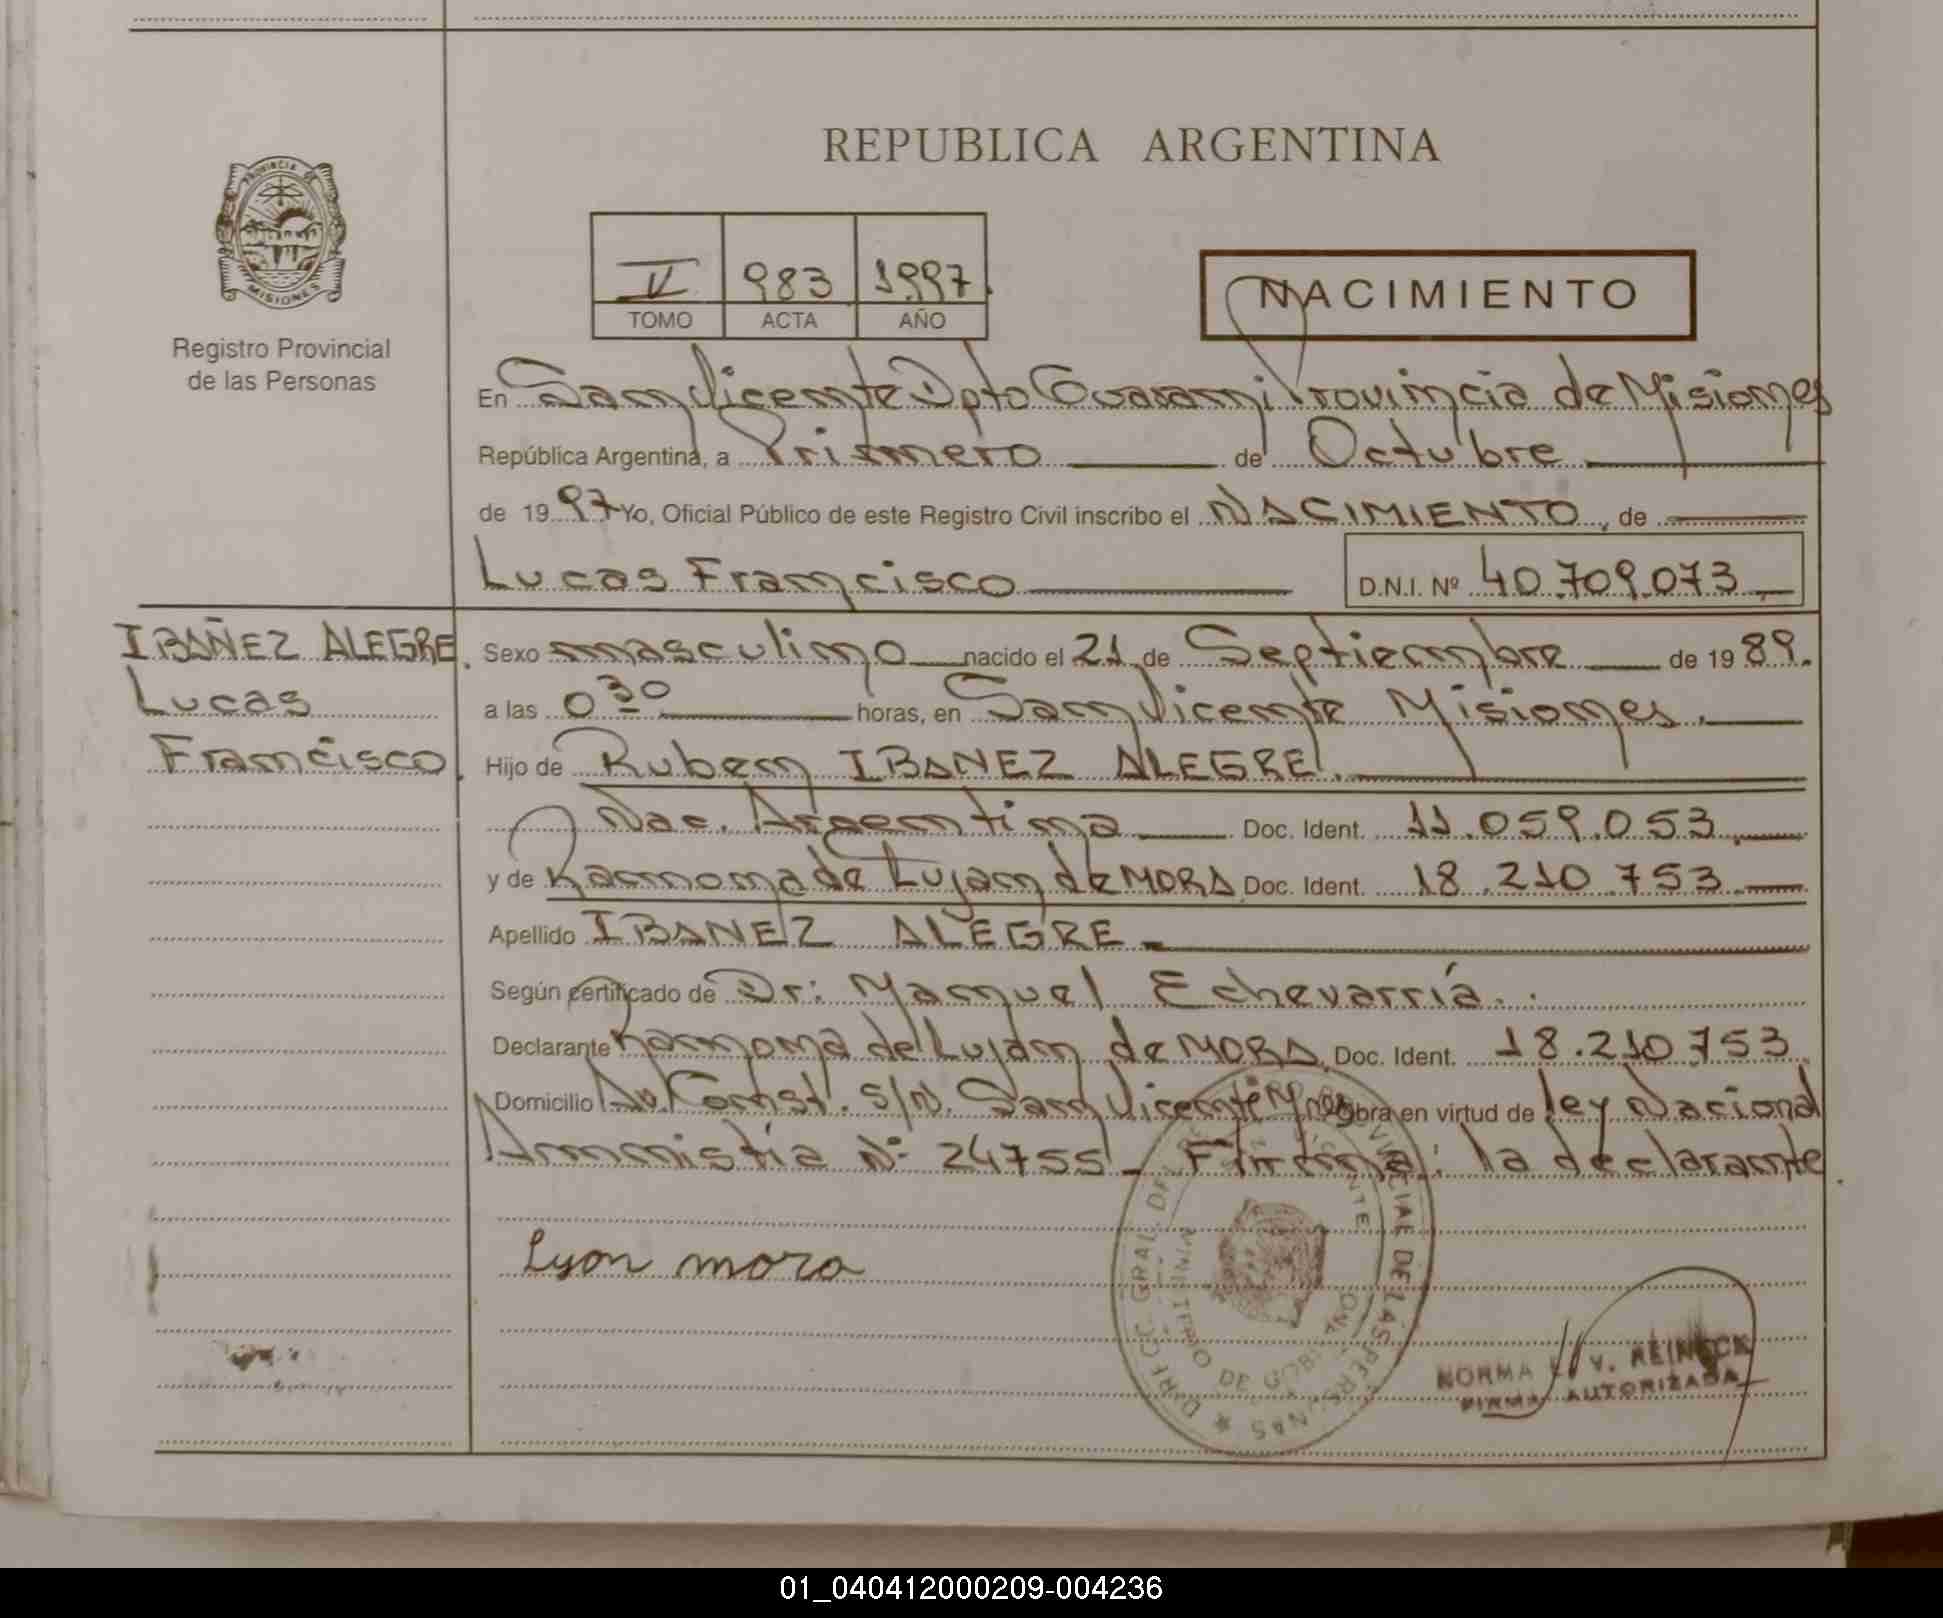 REPUBLICA ARGENTINA
PROVINCIA DE
MISIONES
Registro Provincial
de las Personas
V 983 1997
TOMO ACTA AÑO
NACIMIENTO
En San Vicente Dpto Guarani Provincia de Misiones
República Argentina, a Primero de Octubre
de 1997 Yo, Oficial Público de este Registro Civil inscribo el NACIMIENTO, de
Lucas Francisco D.N.I. Nº 40.709.073
IBAÑEZ ALEGRE
Lucas
Francisco
Sexo masculino nacido el 21 de Septiembre de 1989.
a las 0 30 horas, en San Vicente Misiones.
Hijo de Ruben IBANEZ ALEGRE.
Nac. Argentina Doc. Ident. 11.059.053
y de Ramona de Lujan de MORA Doc. Ident. 18.210.753
Apellido IBANEZ ALEGRE
Según certificado de Dr: Manuel Echevarría.
Declarante Ramona de Lujan de MORA, Doc. Ident. 18.210.753
Domicilio Av. Const. S/N. San Vicente Mnes Obra en virtud de ley Nacional
Amnistía Nº 24755 - Firma: la declarante.
Lyon mora
NORMA V. REINECK
FIRMA AUTORIZADA
01_040412000209-004236